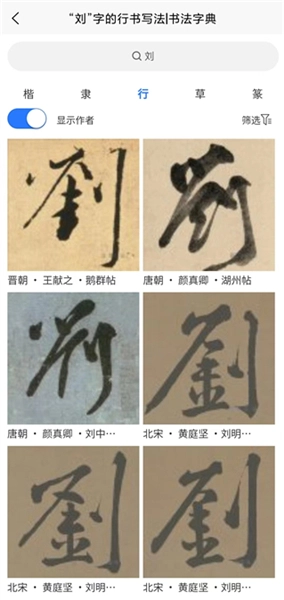 “刘”字的行书写法|书法字典
刘
楷 隶 行 草 篆
显示作者 筛选
劉 劉
晋朝 • 王献之 • 鹅群帖 唐朝 • 颜真卿 • 湖州帖
劉 劉
唐朝 • 颜真卿 • 刘中… 北宋 • 黄庭坚 • 刘明…
劉 劉
北宋 • 黄庭坚 • 刘明… 北宋 • 黄庭坚 • 刘明…